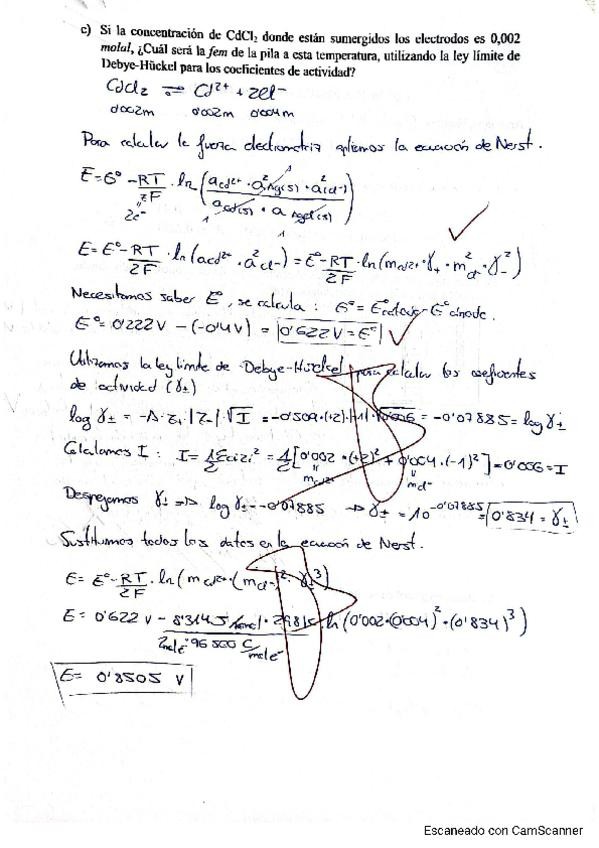 c) Si la concentración de CdCl₂ donde están sumergidos los electrodos es 0,002
molal, ¿Cuál será la fem de la pila a esta temperatura, utilizando la ley límite de
Debye-Hückel para los coeficientes de actividad?
CdCl₂ ⇌ Cd²⁺ + 2Cl⁻
0'002m 0'002m 0'004m
Para calcular la fuerza electromotriz la ecuación de Nerst.
E = E° - RT/2F · ln (a Cd²⁺ · a² Ag(s) · a² Cl⁻ / a Cd(s) · a AgCl(s))
2e⁻ 1 1
E = E° - RT/2F · ln (a Cd²⁺ · a² Cl⁻) = E° - RT/2F · ln (m Cd²⁺ · γ₊ · m² Cl⁻ · γ₋²)
Necesitamos saber E°, se calcula : E° = E° cátodo - E° ánodo.
E° = 0'222 V - (-0'4V) = 0'622 V = E°
Utilizamos la ley límite de Debye-Hückel para calcular los coeficientes
de actividad (γ±)
log γ± = -A · z₊ |z₋| · √I = -0'509 · (+2) · |-1| · √0'006 = -0'07885 = log γ±
Calculamos I : I = 1/2 Σ ci zi² = 1/2 [0'002 · (+2)² + 0'004 · (-1)²] = 0'006 = I
m Cd²⁺ m Cl⁻
Despejamos γ± => log γ± = -0'07885 → γ± = 10^-0'07885 = 0'834 = γ±
Sustituimos todos los datos en la ecuación de Nerst.
E = E° - RT/2F · ln (m Cd²⁺ · (m Cl⁻)² · γ±³)
E = 0'622 V - 8'314 J/K mol · 298 K / 2 mol e⁻ · 96500 C/mol e⁻ ln (0'002 · (0'004)² · (0'834)³)
E = 0'8505 V
Escaneado con CamScanner